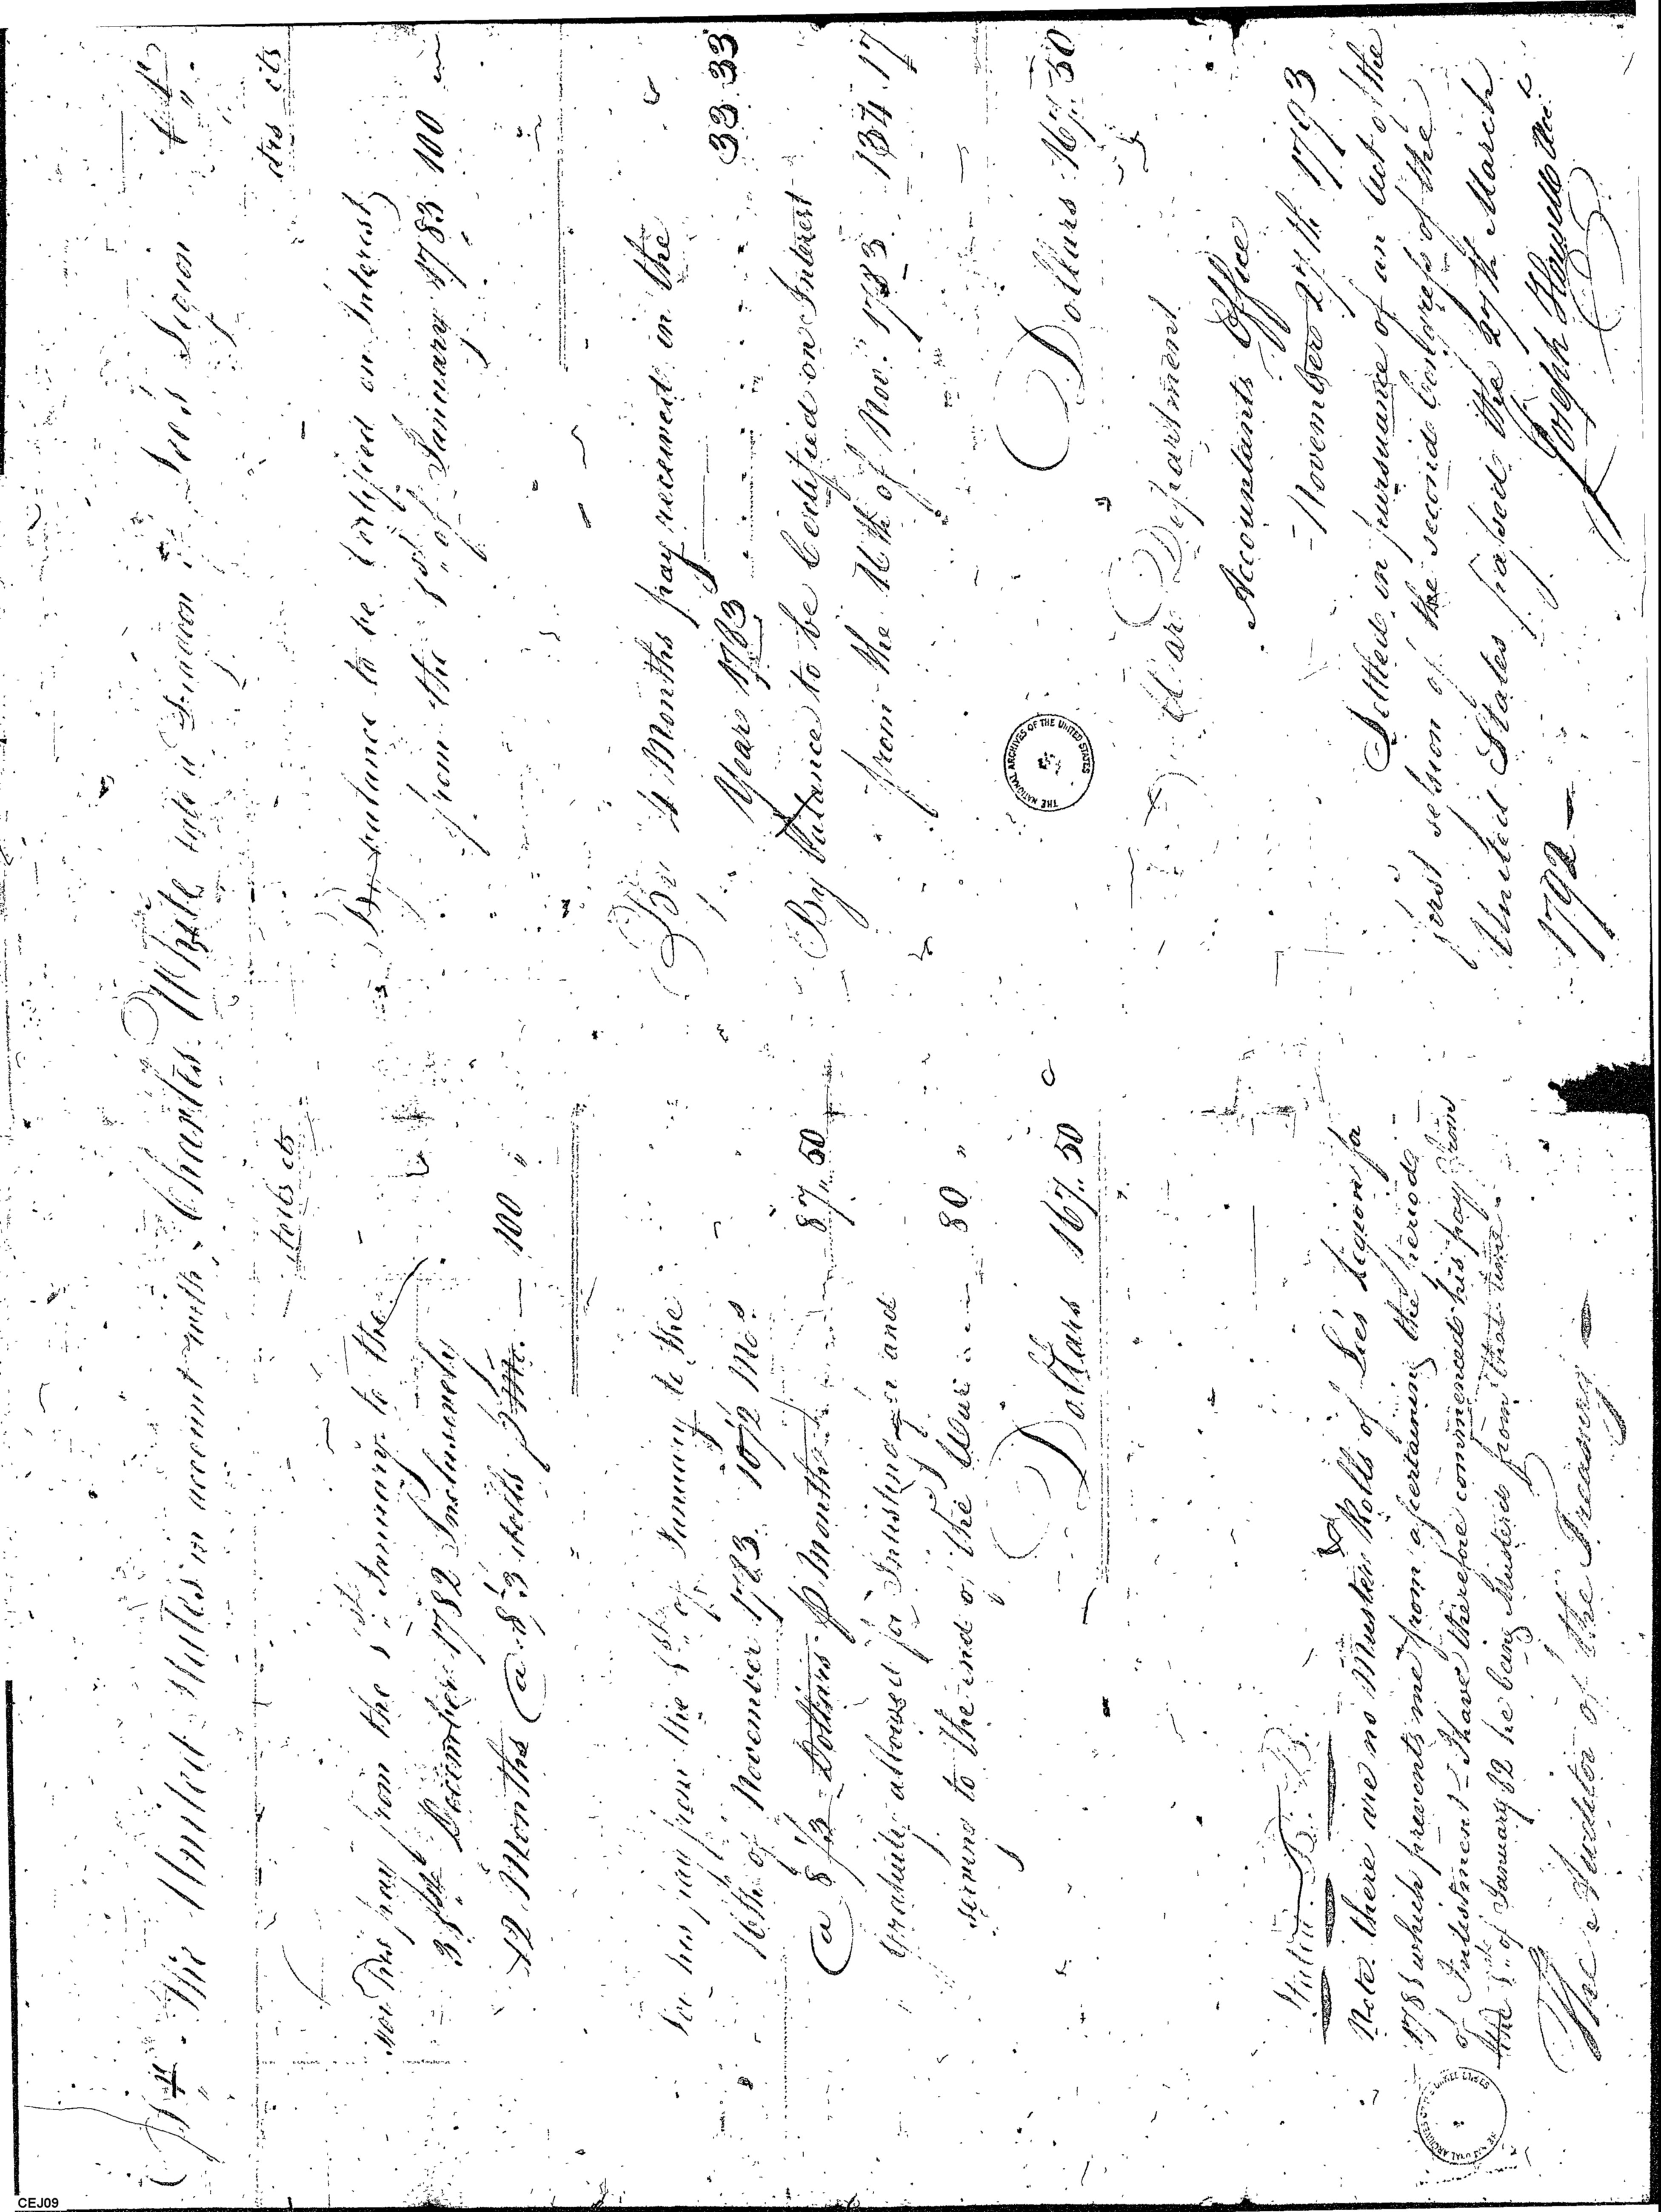 Dr. The United States in account with Charles White late a Dragoon in Lees Legion Cr.
dolls cts
dolls cts
For his pay from the 1st January to the
31st December 1782 Inclusively
12 Months @ 8 1/3 dolls pm. — 100 "
For his pay from the 1st of January to the
16th of November 1783 10 1/2 Mos
@ 8 1/3 Dollars p month 87.. 50
Gratuity allowed for Inlisting and
serving to the end of the War 80 "
Dollars 167.. 50
By balance to be Certified on Interest
from the 1st of January 1783 100 "
By 4 Months pay received in the
Year 1783 33 33
By balance to be Certified on Interest
from the 16th of Nov. 1783 134. 17
Dollars 167.. 50
N. B.
Note there are no Muster Rolls of Lees Legion for
1781 which prevents me from ascertaining the periode
of Inlistment I have therefore commenced his pay from
the 1st of January 82 he being Mustered from that time
The Auditor of the Treasury
War Department
Accountants Office
November 27th 1793
Settled in pursuance of an Act of the
first session of the second Congress of the
United States passed the 27th March
1792 —
Joseph Howell
THE NATIONAL ARCHIVES OF THE UNITED STATES
THE NATIONAL ARCHIVES OF THE UNITED STATES
CEJ09